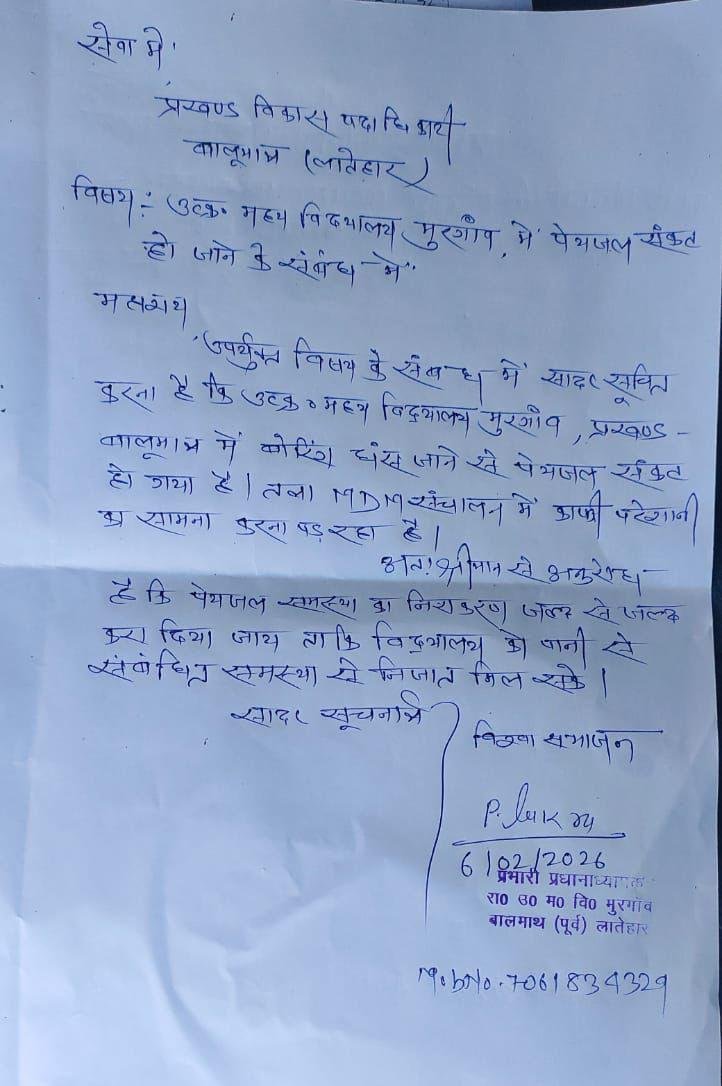 सेवा में
प्रखण्ड विकास पदाधिकारी
बालूमाथ (लातेहार)
विषय :- उत्क्र० मध्य विद्यालय मुरगाँव, में पेयजल संकट
हो जाने के संबंध में
महाशय
उपर्युक्त विषय के संबंध में सादर सूचित
करना है कि उत्क्र० मध्य विद्यालय मुरगाँव, प्रखण्ड -
बालूमाथ में बोरिंग धंस जाने से पेयजल संकट
हो गया है। तथा MDM संचालन में काफी परेशानी
का सामना करना पड़ रहा है।
अतः श्रीमान से अनुरोध
है कि पेयजल समस्या का निराकरण जल्द से जल्द
करा दिया जाय ताकि विद्यालय को पानी से
संबंधित समस्या से निजात मिल सके।
सादर सूचनार्थ
6/02/2026
प्रभारी प्रधानाध्यापक
रा० उ० म० वि० मुरगाँव
बालमाथ (पूर्व) लातेहार
Mob No. 7061834329